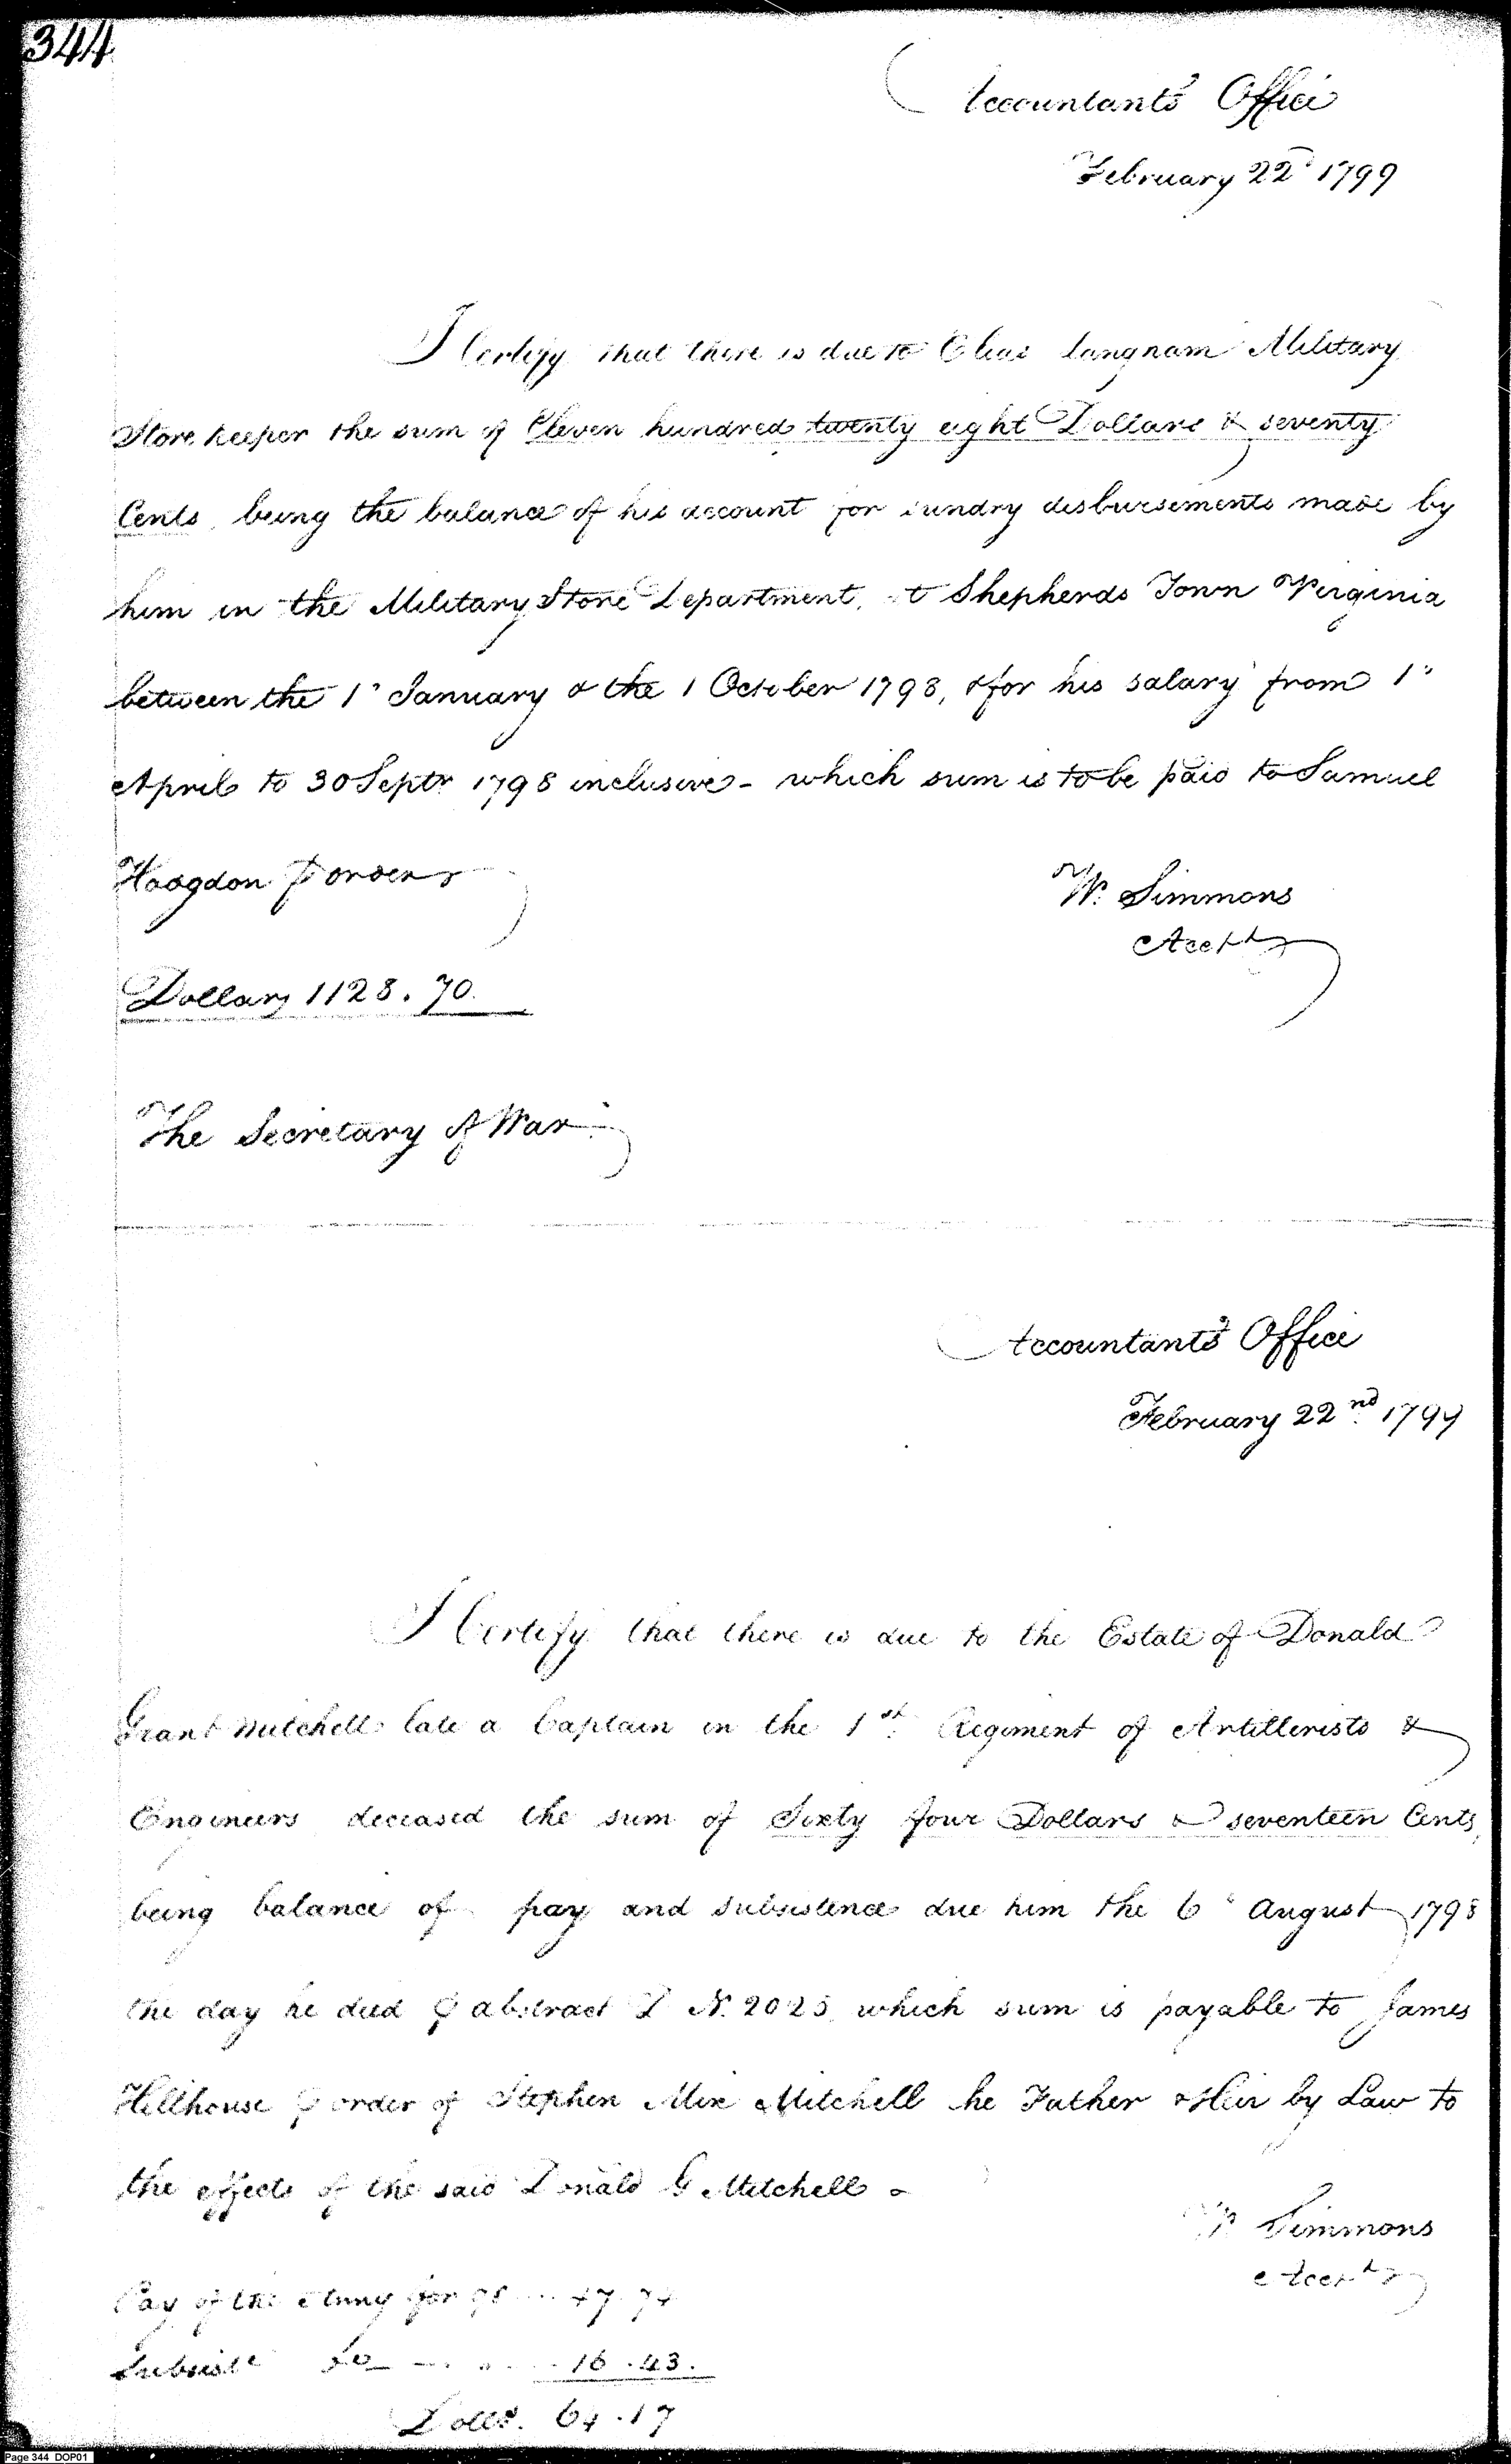 344
Accountants Office
February 22d 1799
I Certify that there is due to Elias Langham Military
Store keeper the sum of Eleven hundred twenty eight Dollars & seventy
Cents, being the balance of his account for sundry disbursements made by
him in the Military Store Department, at Shepherds Town Virginia
between the 1st January & the 1 October 1798, & for his salary from 1st
April to 30 Septr 1798 inclusive - which sum is to be paid to Samuel
Hodgdon ⅌ order
W. Simmons
Acctt
Dollars 1128.70.
The Secretary of War
Accountant's Office
February 22nd 1799
I Certify that there is due to the Estate of Donald
Grant Mitchell late a Captain in the 1st Regiment of Artillerists &
Engineers deceased the sum of Sixty four Dollars & seventeen Cents,
being balance of pay and subsistence due him the 6th August 1798
the day he died ⅌ abstract D N. 2025, which sum is payable to James
Hillhouse ⅌ order of Stephen Mix Mitchell he Father & Heir by Law to
the effects of the said Donald G Mitchell -
W Simmons
Acctt
Pay of the Army for 98 47.74
Subsistce Do 16.43.
Dolls. 64.17
Page 344 DOP01